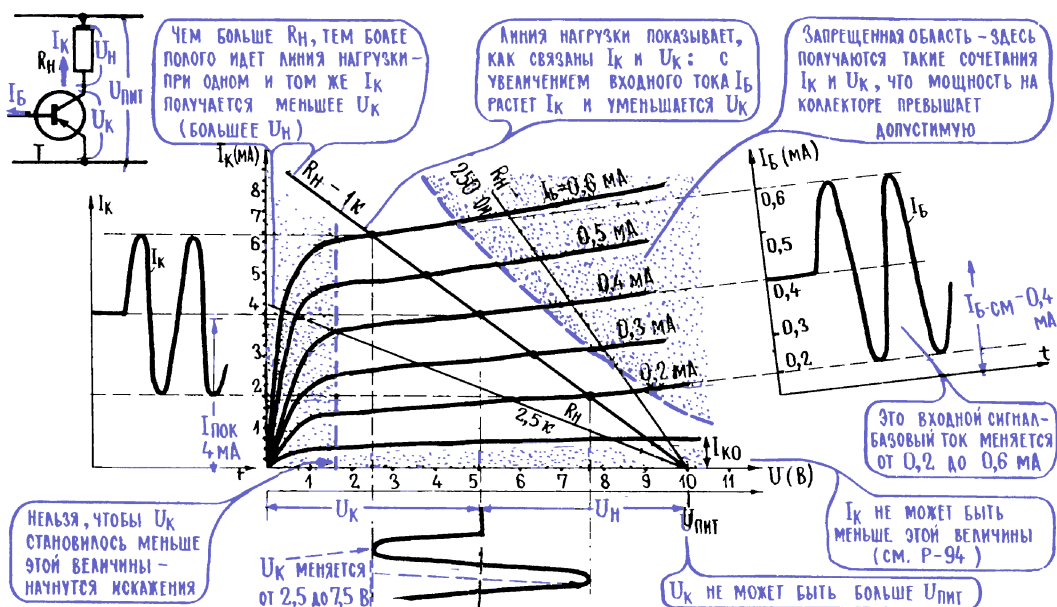 Iк
Uн
Rн
Iб
Uпит
Uк
Т
Чем больше Rн, тем более
полого идет линия нагрузки-
при одном и том же Iк
получается меньшее Uк
(большее Uн)
Линия нагрузки показывает,
как связаны Iк и Uк: с
увеличением входного тока Iб
растет Iк и уменьшается Uк
Запрещенная область – здесь
получаются такие сочетания
Iк и Uк, что мощность на
коллекторе превышает
допустимую
Iк
Iк
Iпок
4мА
Iк(мА)
8
7
6
5
4
3
2
1
Rн – 1к
Rн -
250 Ом
Iб=0,6 мА
0,5 мА
0,4 мА
0,3 мА
0,2 мА
2,5к Rн
Iко
1 2 3 4 5 6 7 8 9 10 11 U(В)
Uк
Uн
Uпит
Iб(мА)
0,6
0,5
0,4
0,3
0,2
Iб
t
Iб·см-0,4
мА
Это входной сигнал-
базовый ток меняется
от 0,2 до 0,6 мА
Нельзя, чтобы Uк
становилось меньше
этой величины –
начнутся искажения
Uк меняется
от 2,5 до 7,5 В
Iк не может быть
меньше этой величины
(см. Р-94)
Uк не может быть больше Uпит